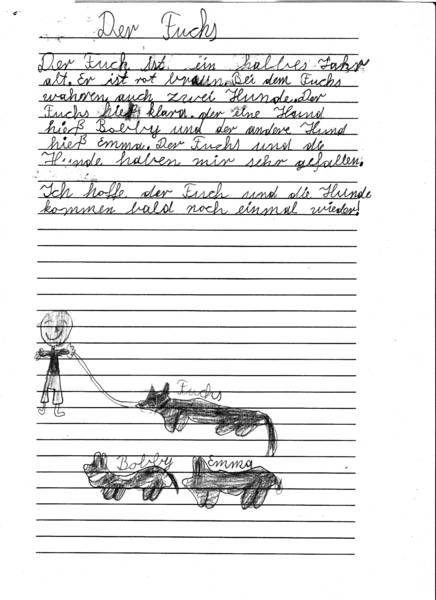 Der Fuchs
Der Fuch ist ein halbes Jahr
alt. Er ist rot braun. Bei dem Fuchs
wahren auch zwei Hunde. Der
Fuchs hieß klara. der eine Hund
hieß Bobby und der andere Hund
hieß Emma. Der Fuchs und die
Hunde haben mir sehr gefallen.
Ich hoffe der Fuch und die Hunde
kommen bald noch einmal wieder!
Fuchs
Bobby Emma